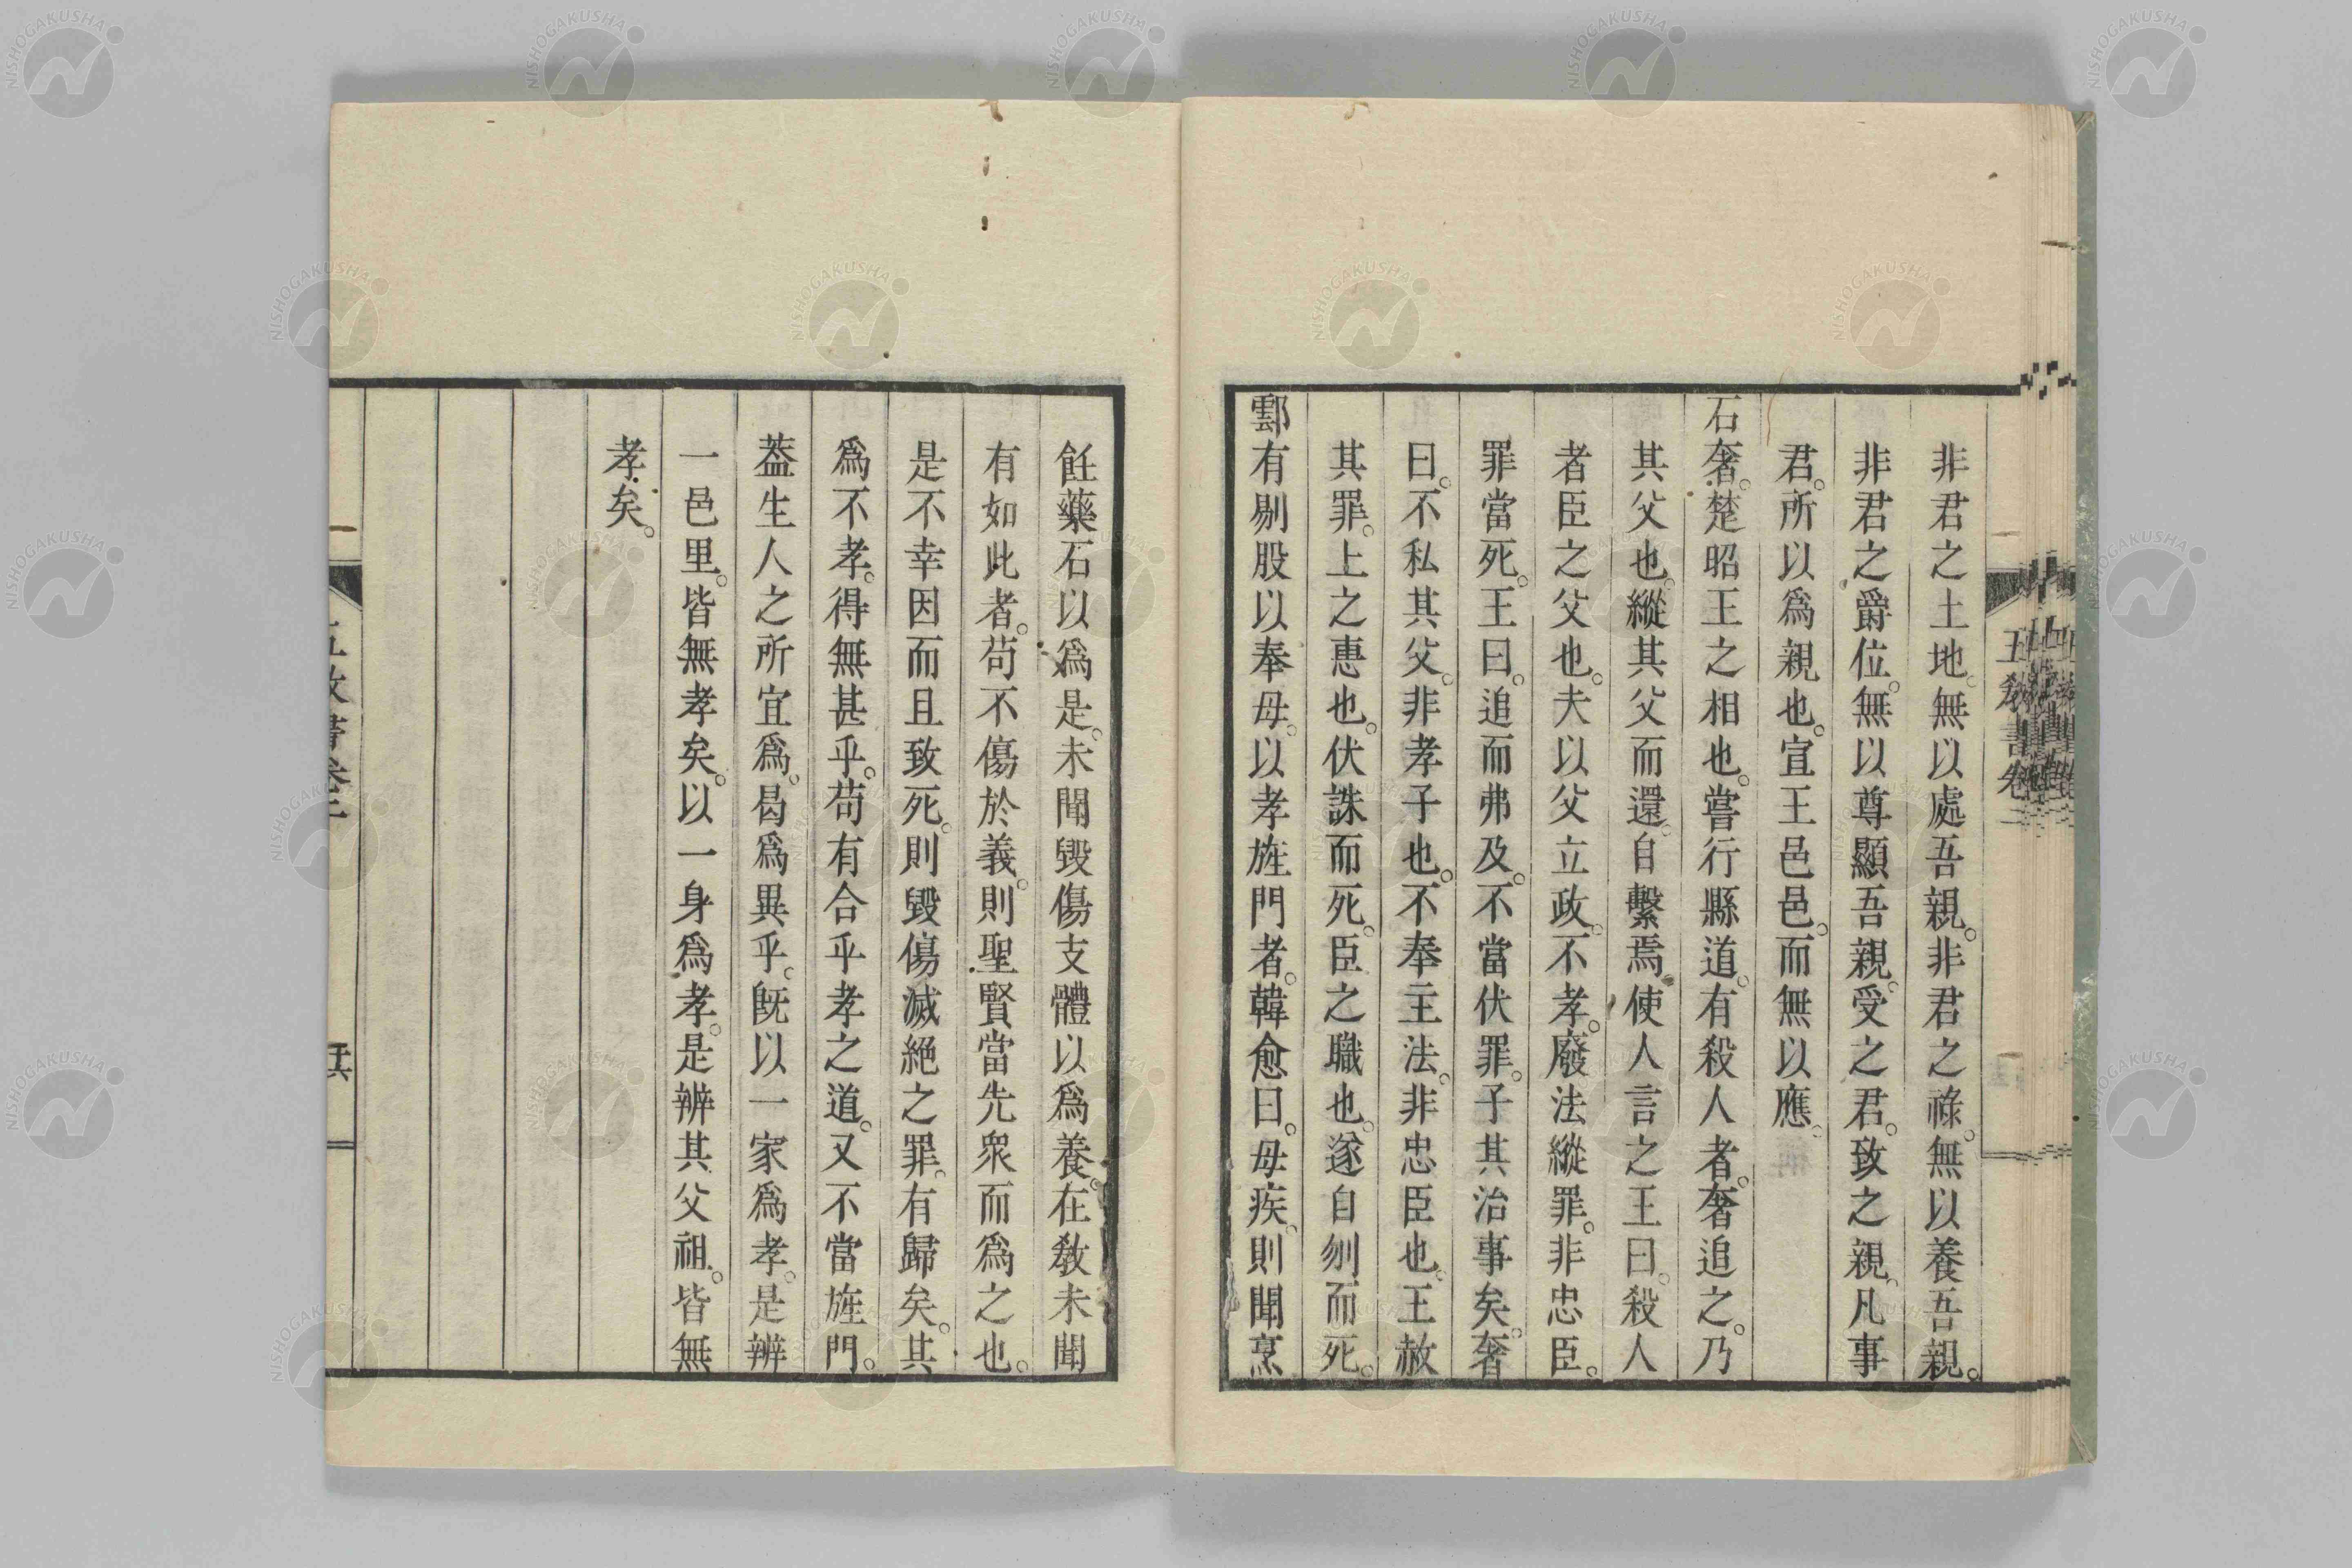 非君之土地。無以處吾親。非君之祿。無以養吾親。
非君之爵位。無以尊顯吾親。受之君。致之親。凡事
君。所以爲親也。宣王邑邑。而無以應。
石奢。楚昭王之相也。嘗行縣道。有殺人者。奢追之。乃
其父也。縱其父而還。自繫焉。使人言之王曰。殺人
者臣之父也。夫以父立政。不孝。廢法縱罪。非忠臣。
罪當死。王曰。追而弗及。不當伏罪。子其治事矣。奢
曰。不私其父。非孝子也。不奉主法。非忠臣也。王赦
其罪。上之惠也。伏誅而死。臣之職也。遂自刎而死。
鄠有剔股以奉母。以孝旌門者。韓愈曰。母疾。則聞烹
五教書卷
飪藥石以爲是。未聞毀傷支體以爲養。在教未聞
有如此者。苟不傷於義。則聖賢當先衆而爲之也。
是不幸因而且致死。則毀傷滅絕之罪。有歸矣。其
爲不孝。得無甚乎。苟有合乎孝之道。又不當旌門。
葢生人之所宜爲。曷爲異乎。旣以一家爲孝。是辨
一邑里。皆無孝矣。以一身爲孝。是辨其父祖。皆無
孝矣。
NISHOGAKUSHA